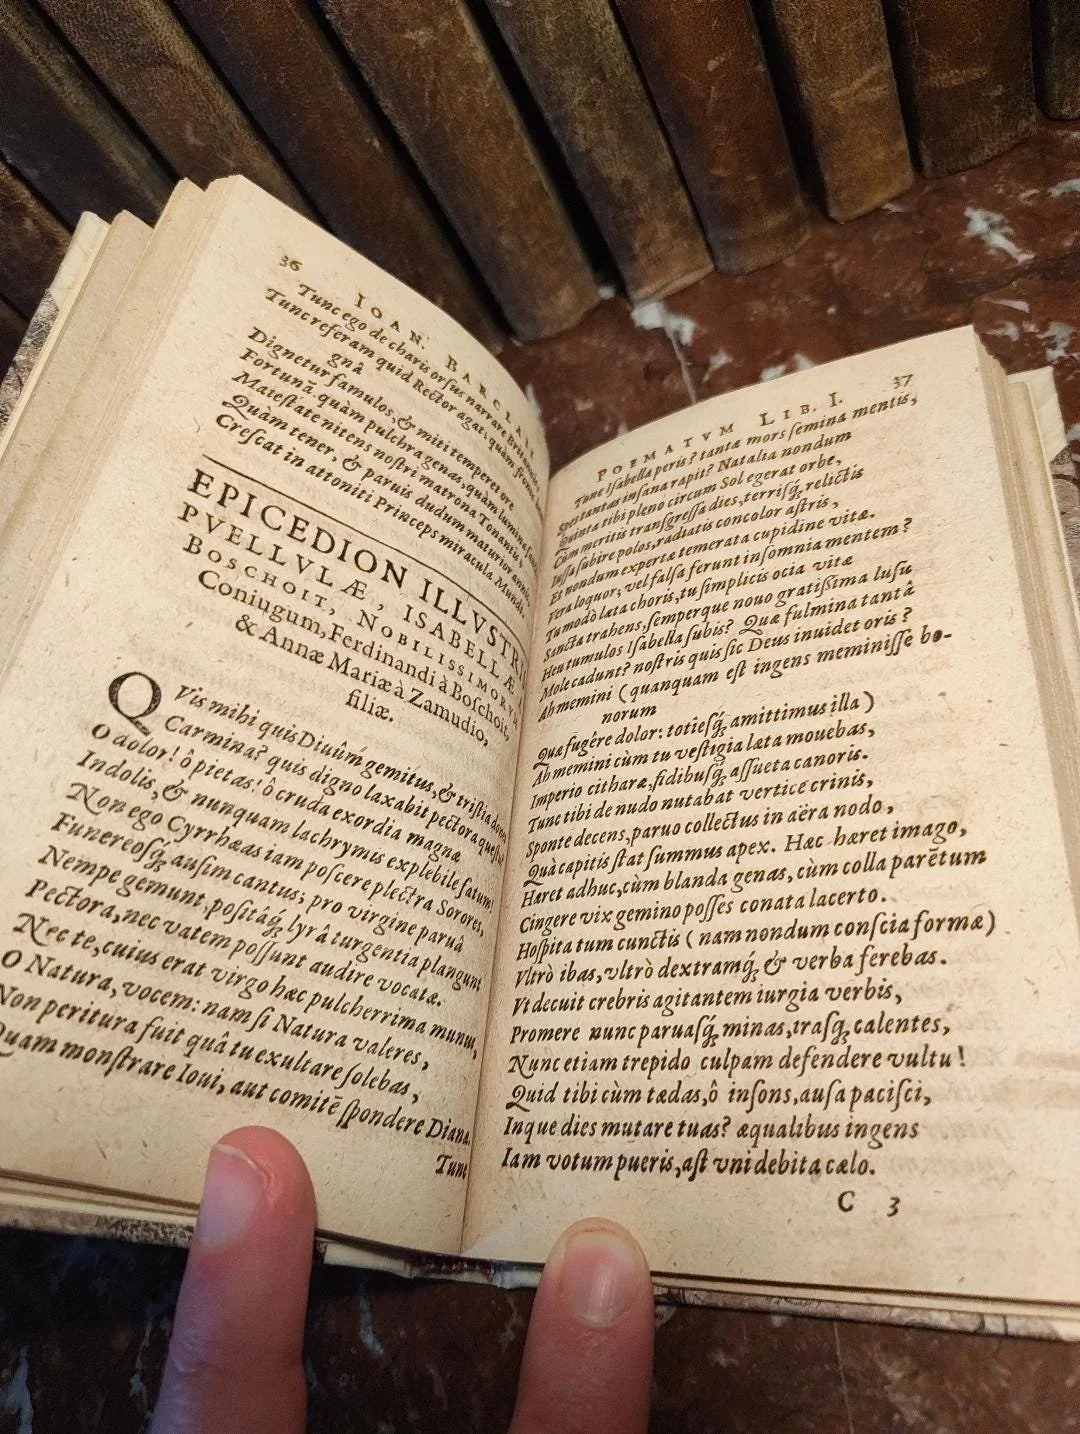 36
IOAN. BARCLAII
Tunc ego de charis orsus narrare Britannis,
Tunc referam quid Rector agat; quàm fronte
gnâ
Dignetur famulos, & miti temperet ore
Fortunã. quàm pulchra genas, quàm lumina
Maiestate nitens nostri matrona Tonantis;
Quàm tener, & paruis dudum maturior annis,
Crescat in attoniti Princeps miracula Mundi.
EPICEDION ILLVSTRI
PVELLVLÆ, ISABELLÆ
BOSCHOIT, NOBILISSIMORVM
Coniugum, Ferdinandi à Boschoit,
& Annæ Mariæ à Zamudio,
filiæ.
QVis mihi quis Diuûm gemitus, & tristia
Carmina? quis digno laxabit pectora
O dolor! ô pietas! ô cruda exordia magnæ
Indolis, & nunquam lachrymis explebile fatum!
Non ego Cyrrhæas iam poscere plectra Sorores,
Funereosq́; ausim cantus; pro virgine paruâ
Nempe gemunt, positâq́; lyrâ turgentia plangunt
Pectora, nec vatem possunt audire vocatæ.
Nec te, cuius erat virgo hæc pulcherrima munus,
O Natura, vocem: nam si Natura valeres,
Non peritura fuit quâ tu exultare solebas,
Quam monstrare Ioui, aut comitẽ spondere Dianæ.
Tune
POEMATVM LIB. I. 37
Tune Isabella peris? tantæ mors semina mentis,
Spes tantas insana rapit? Natalia nondum
Quinta tibi pleno circum Sol egerat orbe,
Cùm meritis transgressa dies, terrisq́; relictis
Iussa subire polos, radiatis concolor astris,
Et nondum expertæ temerata cupidine vitæ.
Vera loquor; vel falsa ferunt insomnia mentem?
Tu modò læta choris, tu simplicis ocia vitæ
Sancta trahens, semperque nouo gratissima lusu
Heu tumulos Isabella subis? Quæ fulmina tantâ
Mole cadunt? nostris quis sic Deus inuidet oris?
Ah memini (quanquam est ingens meminisse bo-
norum
Quæ fugêre dolor: totiesq́; amittimus illa)
Ah memini cùm tu vestigia læta mouebas,
Imperio citharæ, fidibusq́; assueta canoris.
Tunc tibi de nudo nutabat vertice crinis,
Sponte decens, paruo collectus in aëra nodo,
Quà capitis stat summus apex. Hæc hæret imago,
Hæret adhuc, cùm blanda genas, cùm colla parẽtum
Cingere vix gemino posses conata lacerto.
Hospita tum cunctis (nam nondum conscia formæ)
Vltrò ibas, vltrò dextramq́; & verba ferebas.
Vt decuit crebris agitantem iurgia verbis,
Promere nunc paruasq́; minas, irasq́; calentes,
Nunc etiam trepido culpam defendere vultu!
Quid tibi cùm tædas, ô insons, ausa pacisci,
Inque dies mutare tuas? æqualibus ingens
Iam votum pueris, ast vni debita cælo.
C 3